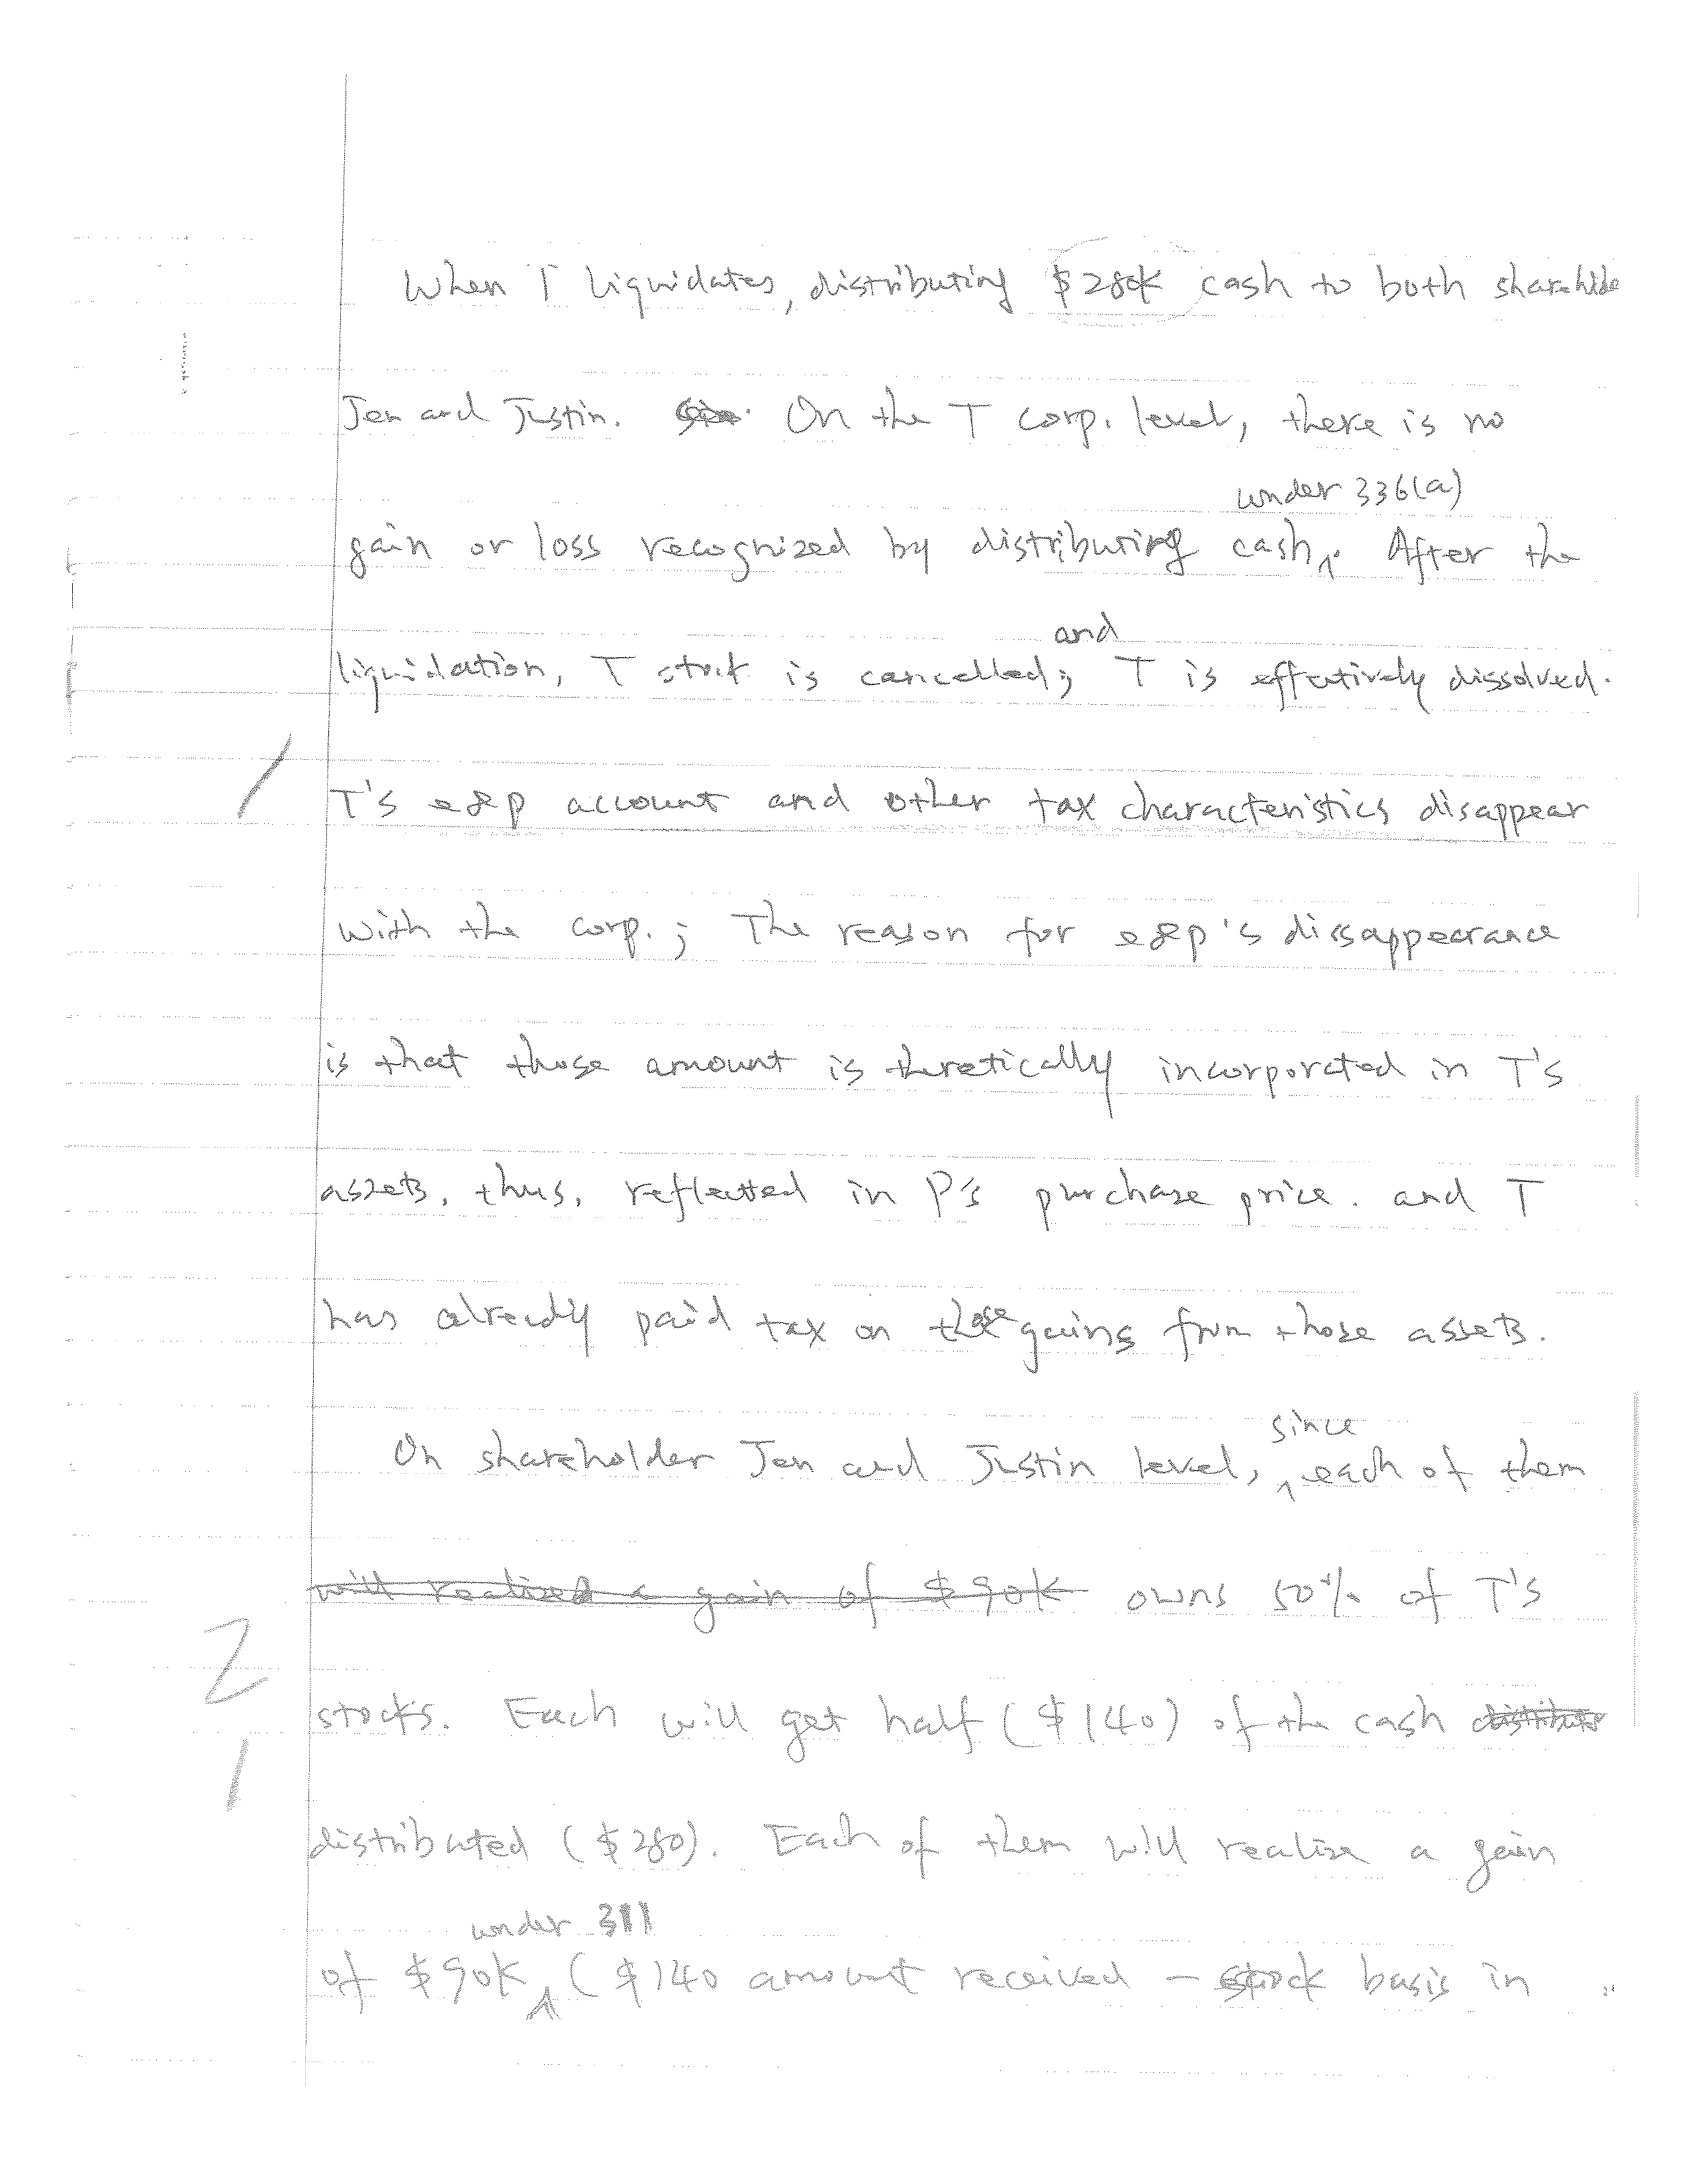 When T liquidates, distributing $280K cash to both sharehlde
Jen and Justin. On the T corp. level, there is no
under 336(a)
gain or loss recognized by distributing cash. After the
and
liquidation, T stock is cancelled; T is effectively dissolved.
/ T's e&p account and other tax characteristics disappear
with the corp.; The reason for e&p's dissappearance
is that those amount is theretically incorporated in T's
assets, thus, reflected in P's purchase price. and T
has already paid tax on those gains from those assets.
since
On shareholder Jen and Justin level, each of them
will realized a gain of $90K owns 50% of T's
2
stocks. Each will get half ($140) of the cash distribute
1
distributed ($280). Each of them will realize a gain
under 311
of $90K ($140 amount received - stock basis in